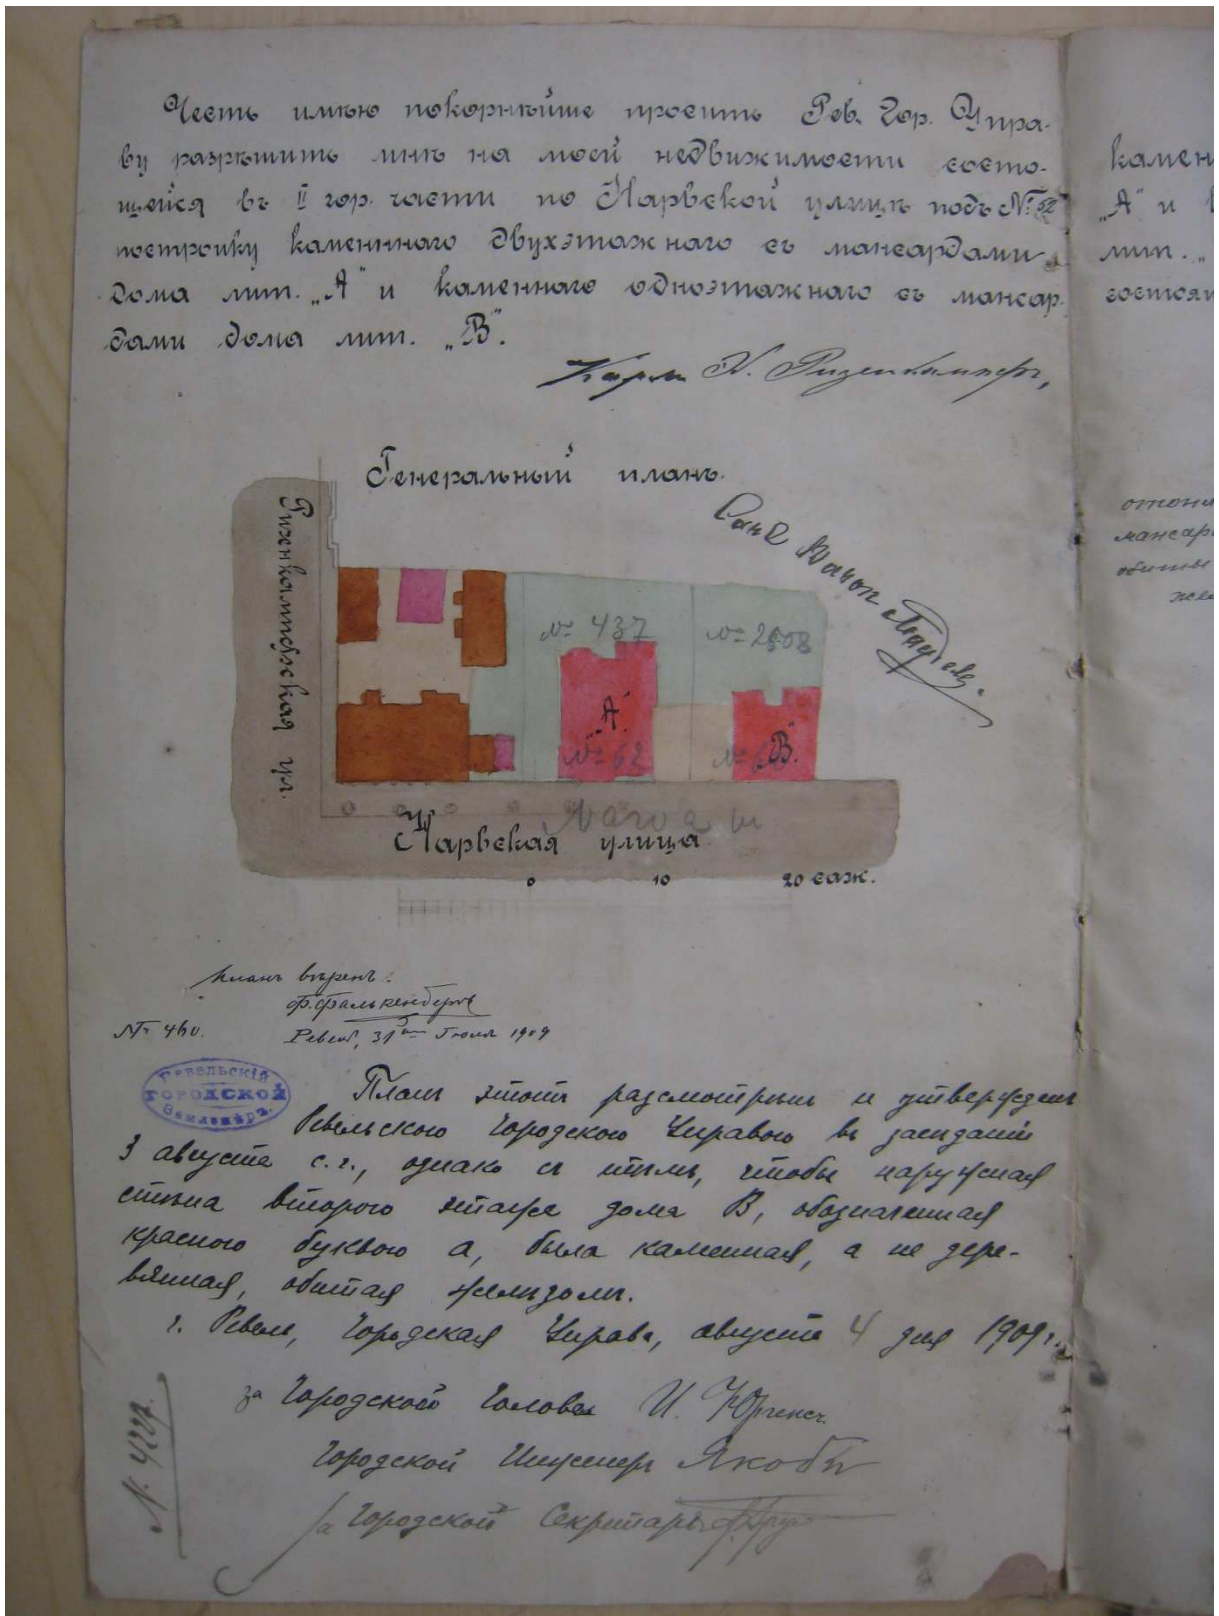 Честь имѣю покорнѣйше просить Рев. Гор. Упра-
ву разрѣшить мнѣ на моей недвижимости состо-
щейся въ II гор. части по Нарвской улицѣ подъ № 62
постройку каменнаго двухэтажнаго съ мансардами
дома лит. „А" и каменнаго одноэтажнаго съ мансар-
дами дома лит. „В".
Карлъ Х. Ризенкампфъ,
камен
„А" и
лит. „
состоя
Генеральный планъ.
мансар
обиты
Ризенкампфская ул.
№ 437
№ 2608
„А"
№ 62
№ 6
„В".
Narva
Нарвская улица
0 10 20 саж.
Планъ вѣренъ:
Ф. Фалькенбергъ
№ 460.
Ревель, 31го Іюля 1909
Ревельскій
Городской
Землемѣръ.
Планъ этотъ разсмотрѣнъ и утвержденъ
Ревельскою Городскою Управою въ засѣданіи
3 августа с. г., однако съ тѣмъ, чтобы наружная
стѣна второго этажа дома В, обозначенная
красною буквою а, была каменная, а не дере-
вянная, обитая желѣзомъ.
г. Ревель, Городская Управа, августа 4 дня 1909 г.
за Городской Головы И. Юргенсъ
Городской Инженеръ Якоби
за Городской Секретарь